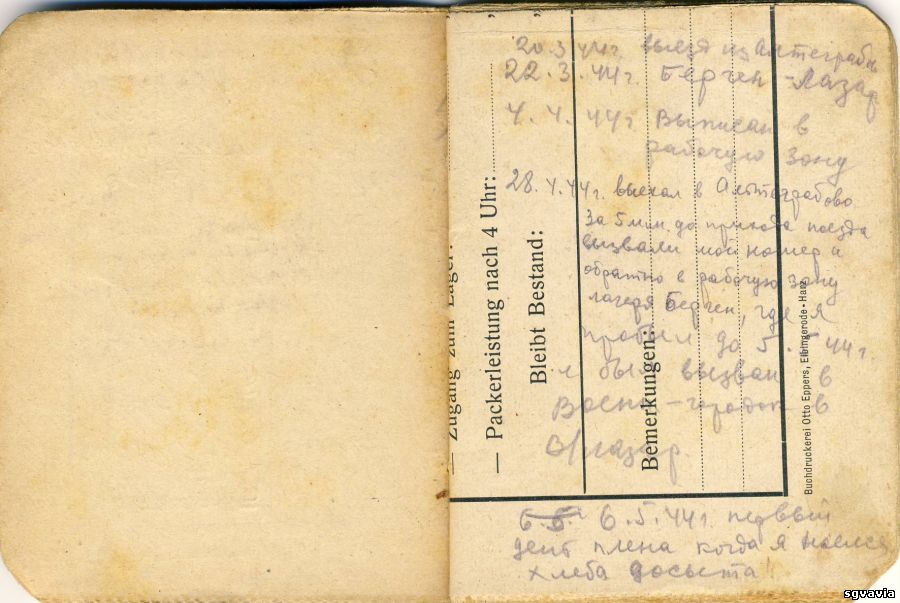 20.3.44г. выезд из Алтеграбов
22.3.44г. Берген-Лазар
4.4.44г выписан в
рабочую зону
28.4.44г. выехал в Алтеграбово
За 5 мин. до прихода поезда
вызвали мой номер и
обратно в рабочую зону
лагеря Берген, где я
пробыл до 5.5.44г.
и был вызван в
Воен-городок в
О/лазар.
6.5. 6.5.44г. первый
день плена когда я наелся
хлеба досыта!
— Zugang zum Lager:
— Packerleistung nach 4 Uhr:
„ Bleibt Bestand:
Bemerkungen:
Buchdruckerei Otto Eppers, Elbingerode-Harz
sgvavia